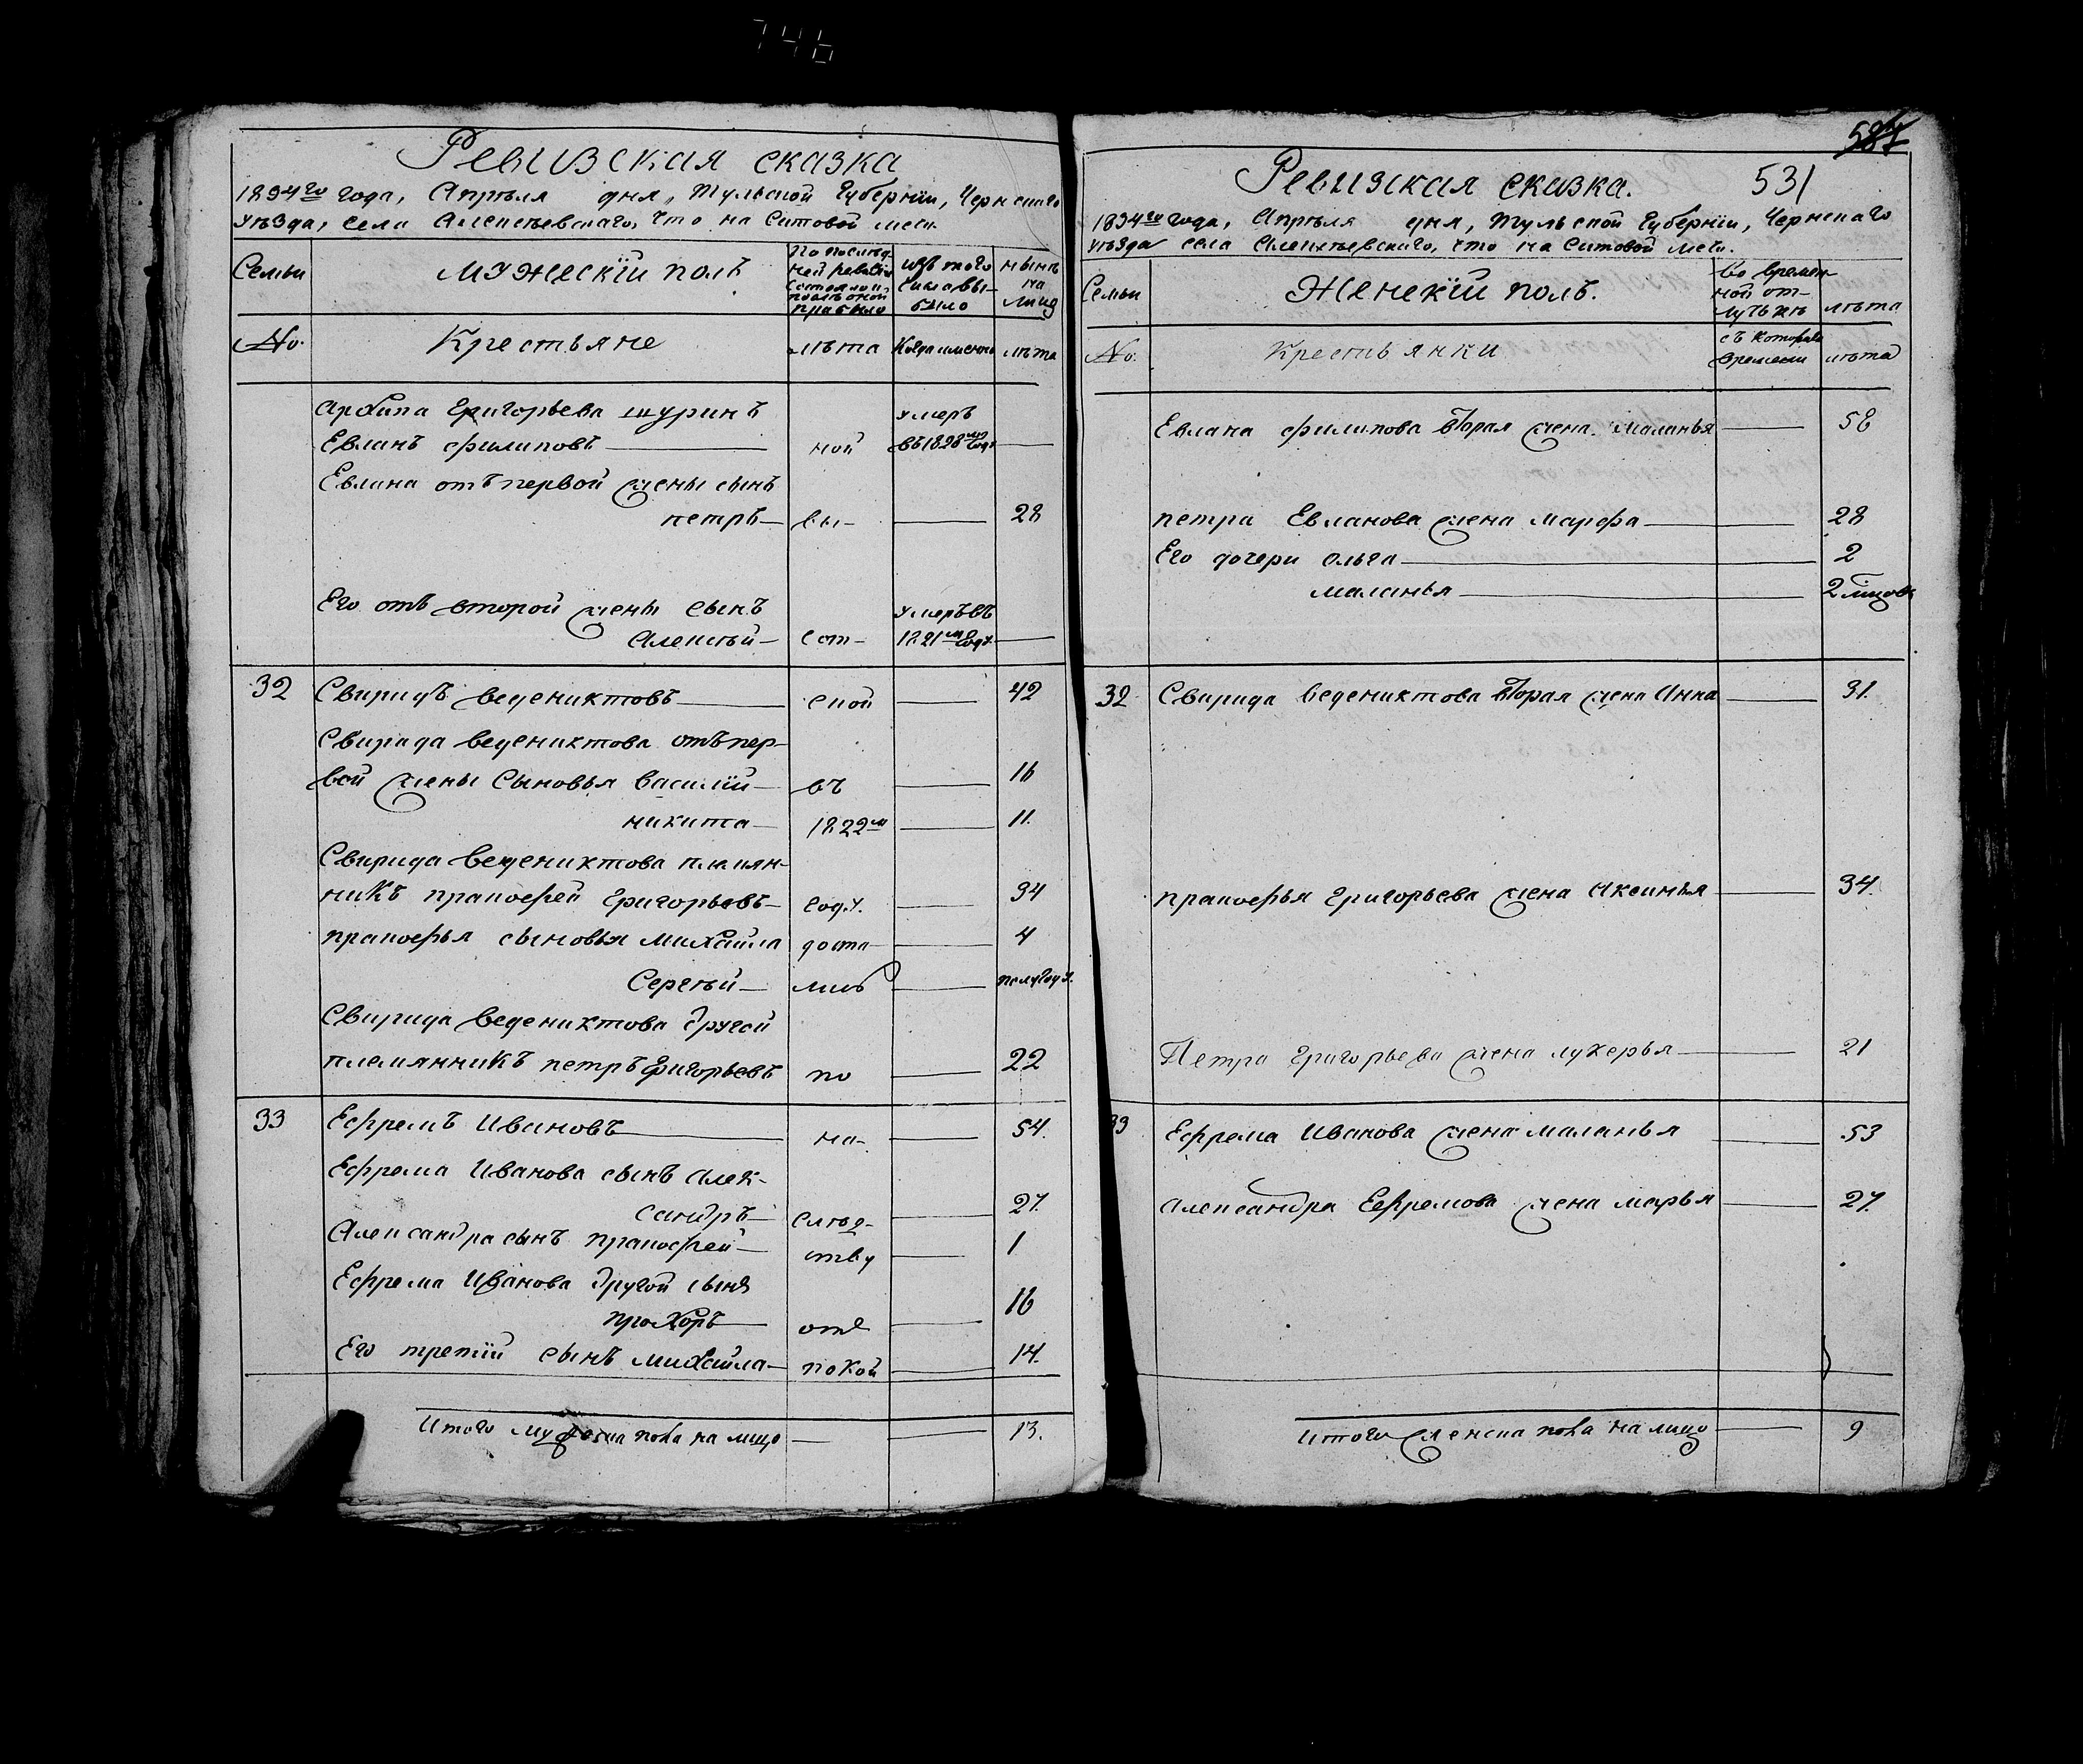 746
Ревизская сказка
1834го года, Апрѣля дня, Тульской Губерніи, Чернскаго
уѣзда, села Алексѣевскаго, что на Ситовой мечи
Семьи
Мужескій полъ
По послѣд-
ней ревизіи
состояло и
послѣ оной
прибыло
Изъ того
числа вы-
было
Нынѣ
на
лицо
No.
Крестьяне
лѣта
Когда именно
лѣта
Архипа Григорьева шуринъ
умеръ
Евланъ Филиповъ
ной
въ 1828мъ году
Евлана отъ первой жены сынъ
Петръ
вы-
28
Его отъ второй жены сынъ
умеръ въ
Алексѣй
сот-
1821мъ году
32
Свиридъ Ведениктовъ
ской
42
Свирида Ведениктова отъ пер-
вой жены сыновья Василій
въ
16
Никита
1822м
11.
Свирида Ведениктова племян-
никъ Прокофей Григорьевъ
году.
34
Прокофья сыновья Михайла
доста
4
Сергѣй
лись
полугоду.
Свирида Ведениктова другой
племянникъ Петръ Григорьевъ
по
22
33
Ефремъ Ивановъ
на-
54.
Ефрема Иванова сынъ Алек-
сандръ
слѣд-
27.
Александра сынъ Прокофей
ству
1
Ефрема Иванова другой сынъ
Прохоръ
отъ
16
Его третій сынъ Михайла
покой
14.
Итого мужеска пола на лицо
13.
587
531
Ревизская сказка.
1834го года, Апрѣля дня, Тульской Губерніи, Чернскаго
уѣзда села Алексѣевскаго, что на Ситовой мечи.
Семьи
Женскій полъ.
Во времен-
ной от-
лучкѣ
лѣта
No.
Крестьянки
съ котораго
времени
лѣта
Евлана Филипова вторая жена Маланья
58
Петра Евланова жена Марфа
28
Его дочери Ольга
2
Маланья
32
Свирида Ведениктова вторая жена Анна
31.
Прокофья Григорьева жена Аксинья
34.
Петра Григорьева жена Лукерья
21
33
Ефрема Иванова жена Маланья
53
Александра Ефремова жена Марья
27.
Итого женска пола на лицо
9